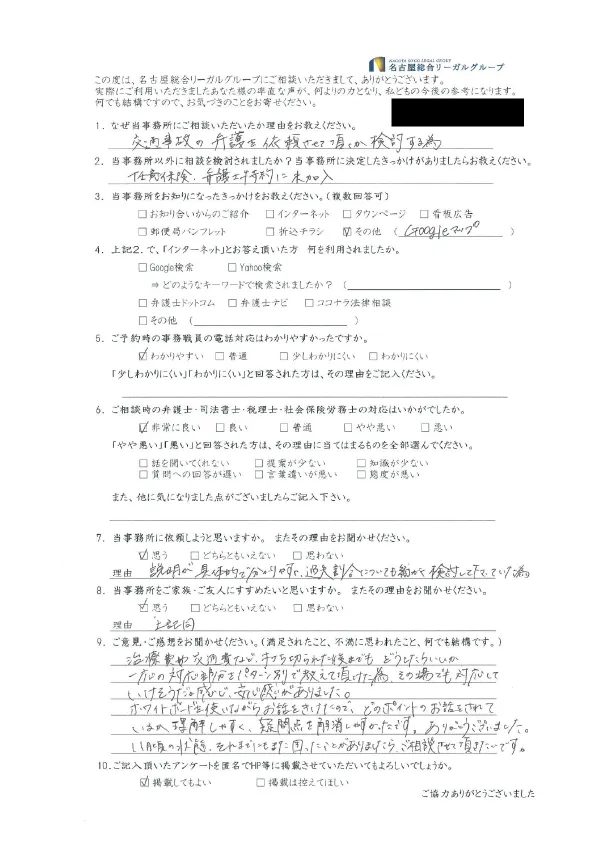 NAGOYA SOGO LEGAL GROUP
名古屋総合リーガルグループ
この度は、名古屋総合リーガルグループにご相談いただきまして、ありがとうございます。
実際にご利用いただきましたあなた様の率直な声が、何よりの力となり、私どもの今後の参考になります。
何でも結構ですので、お気づきのことをお寄せください。
1. なぜ当事務所にご相談いただいたか理由をお教えください。
交通事故の弁護を依頼させて頂くか検討する為
2. 当事務所以外に相談を検討されましたか?当事務所に決定したきっかけがありましたらお教えください。
任意保険、弁護士特約に未加入
3. 当事務所をお知りになったきっかけをお教えください。(複数回答可)
□お知り合いからのご紹介 □インターネット □タウンページ □看板広告
□郵便局パンフレット □折込チラシ ☑その他 ( Googleマップ )
4. 上記2.で、「インターネット」とお答え頂いた方 何を利用されましたか。
□Google検索 □Yahoo検索
⇒どのようなキーワードで検索されましたか? ( )
□弁護士ドットコム □弁護士ナビ □ココナラ法律相談
□その他 ( )
5. ご予約時の事務職員の電話対応はわかりやすかったですか。
☑わかりやすい □普通 □少しわかりにくい □わかりにくい
「少しわかりにくい」「わかりにくい」と回答された方は、その理由をご記入ください。
6. ご相談時の弁護士・司法書士・税理士・社会保険労務士の対応はいかがでしたか。
☑非常に良い □良い □普通 □やや悪い □悪い
「やや悪い」「悪い」と回答された方は、その理由に当てはまるものを全部選んでください。
□話を聞いてくれない □提案が少ない □知識が少ない
□質問への回答が遅い □言葉遣いが悪い □態度が悪い
また、他に気になりました点がございましたらご記入下さい。
7. 当事務所に依頼しようと思いますか。 またその理由をお聞かせください。
☑思う □どちらともいえない □思わない
理由 説明が具体的で分かりやすく、過失割合についても細かく検討して下さっていた為
8. 当事務所をご家族・ご友人にすすめたいと思いますか。 またその理由をお聞かせください。
☑思う □どちらともいえない □思わない
理由 上記同
9. ご意見・ご感想をお聞かせください。(満足されたこと、不満に思われたこと、何でも結構です。)
治療費や交通費など、打ち切られた後までも どうしたらいいか
一応の対応部分をパターン別で教えて頂けた為、その場でも対応して
いけそうだと感じ、安心感がありました。
ホワイトボードを使いながらお話をきけたので、どのポイントのお話をされて
いるか理解しやすく、疑問点を解消しやすかったです。ありがとうございました。
の状態、それまでにもまた困ったことがありましたら、ご相談させて頂きたいです。
10. ご記入頂いたアンケートを匿名でHP等に掲載させていただいてもよろしいでしょうか。
☑掲載してもよい □掲載は控えてほしい
ご協力ありがとうございました